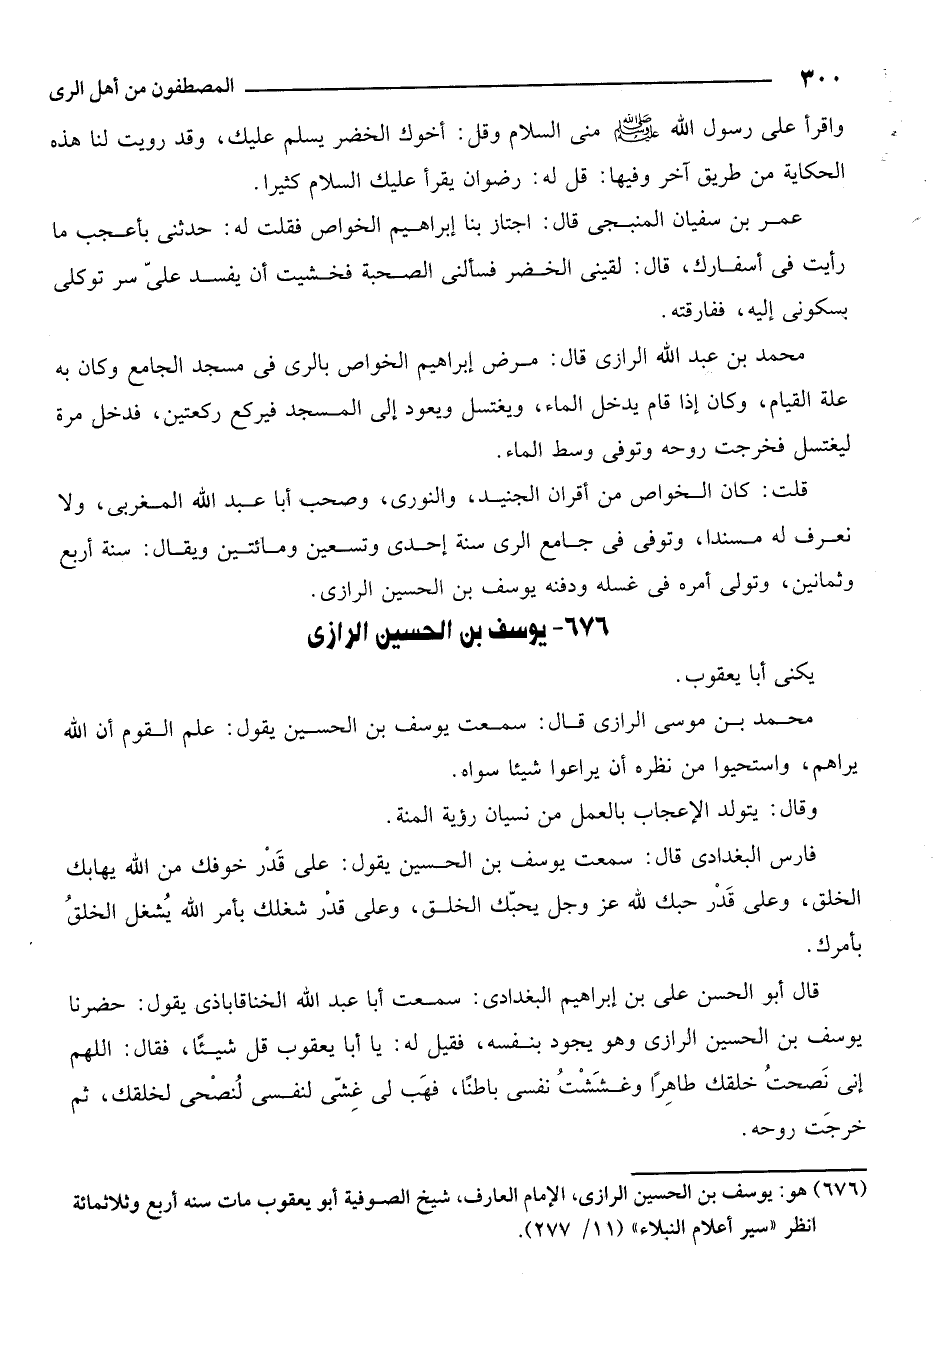 ٣٠٠ المصطفون من أهل الرى
واقرأ على رسول الله ﷺ منى السلام وقل: أخوك الخضر يسلم عليك، وقد رويت لنا هذه
الحكاية من طريق آخر وفيها: قل له: رضوان يقرأ عليك السلام كثيرا.
عمر بن سفيان المنبجى قال: اجتاز بنا إبراهيم الخواص فقلت له: حدثنى بأعجب ما
رأيت فى أسفارك، قال: لقينى الخضر فسألنى الصحبة فخشيت أن يفسد علىّ سر توكلى
بسكونى إليه، ففارقته.
محمد بن عبد الله الرازى قال: مرض إبراهيم الخواص بالرى فى مسجد الجامع وكان به
علة القيام، وكان إذا قام يدخل الماء، ويغتسل ويعود إلى المسجد فيركع ركعتين، فدخل مرة
ليغتسل فخرجت روحه وتوفى وسط الماء.
قلت: كان الخواص من أقران الجنيد، والنورى، وصحب أبا عبد الله المغربى، ولا
نعرف له مسندا، وتوفى فى جامع الرى سنة إحدى وتسعين ومائتين ويقال: سنة أربع
وثمانين، وتولى أمره فى غسله ودفنه يوسف بن الحسين الرازى.
٦٧٦- يوسف بن الحسين الرازى
يكنى أبا يعقوب.
محمد بن موسى الرازى قال: سمعت يوسف بن الحسين يقول: علم القوم أن الله
يراهم، واستحيوا من نظره أن يراعوا شيئا سواه.
وقال: يتولد الإعجاب بالعمل من نسيان رؤية المنة.
فارس البغدادى قال: سمعت يوسف بن الحسين يقول: على قَدْر خوفك من الله يهابك
الخلق، وعلى قَدْر حبك لله عز وجل يحبّك الخلق، وعلى قدْر شغلك بأمر الله يُشغل الخلقُ
بأمرك.
قال أبو الحسن على بن إبراهيم البغدادى: سمعت أبا عبد الله الخناقاباذى يقول: حضرنا
يوسف بن الحسين الرازى وهو يجود بنفسه، فقيل له: يا أبا يعقوب قل شيئًا، فقال: اللهم
إنى نَصحتُ خلقك ظاهِرًا وغشَشْتُ نفسى باطنًا، فهَب لى غِشّى لنفسى لنُصْحى لخلقك، ثم
خرجَت روحه.
(٦٧٦) هو: يوسف بن الحسين الرازى، الإمام العارف، شيخ الصوفية أبو يعقوب مات سنه أربع وثلاثمائة
انظر «سير أعلام النبلاء» (١١/ ٢٧٧).